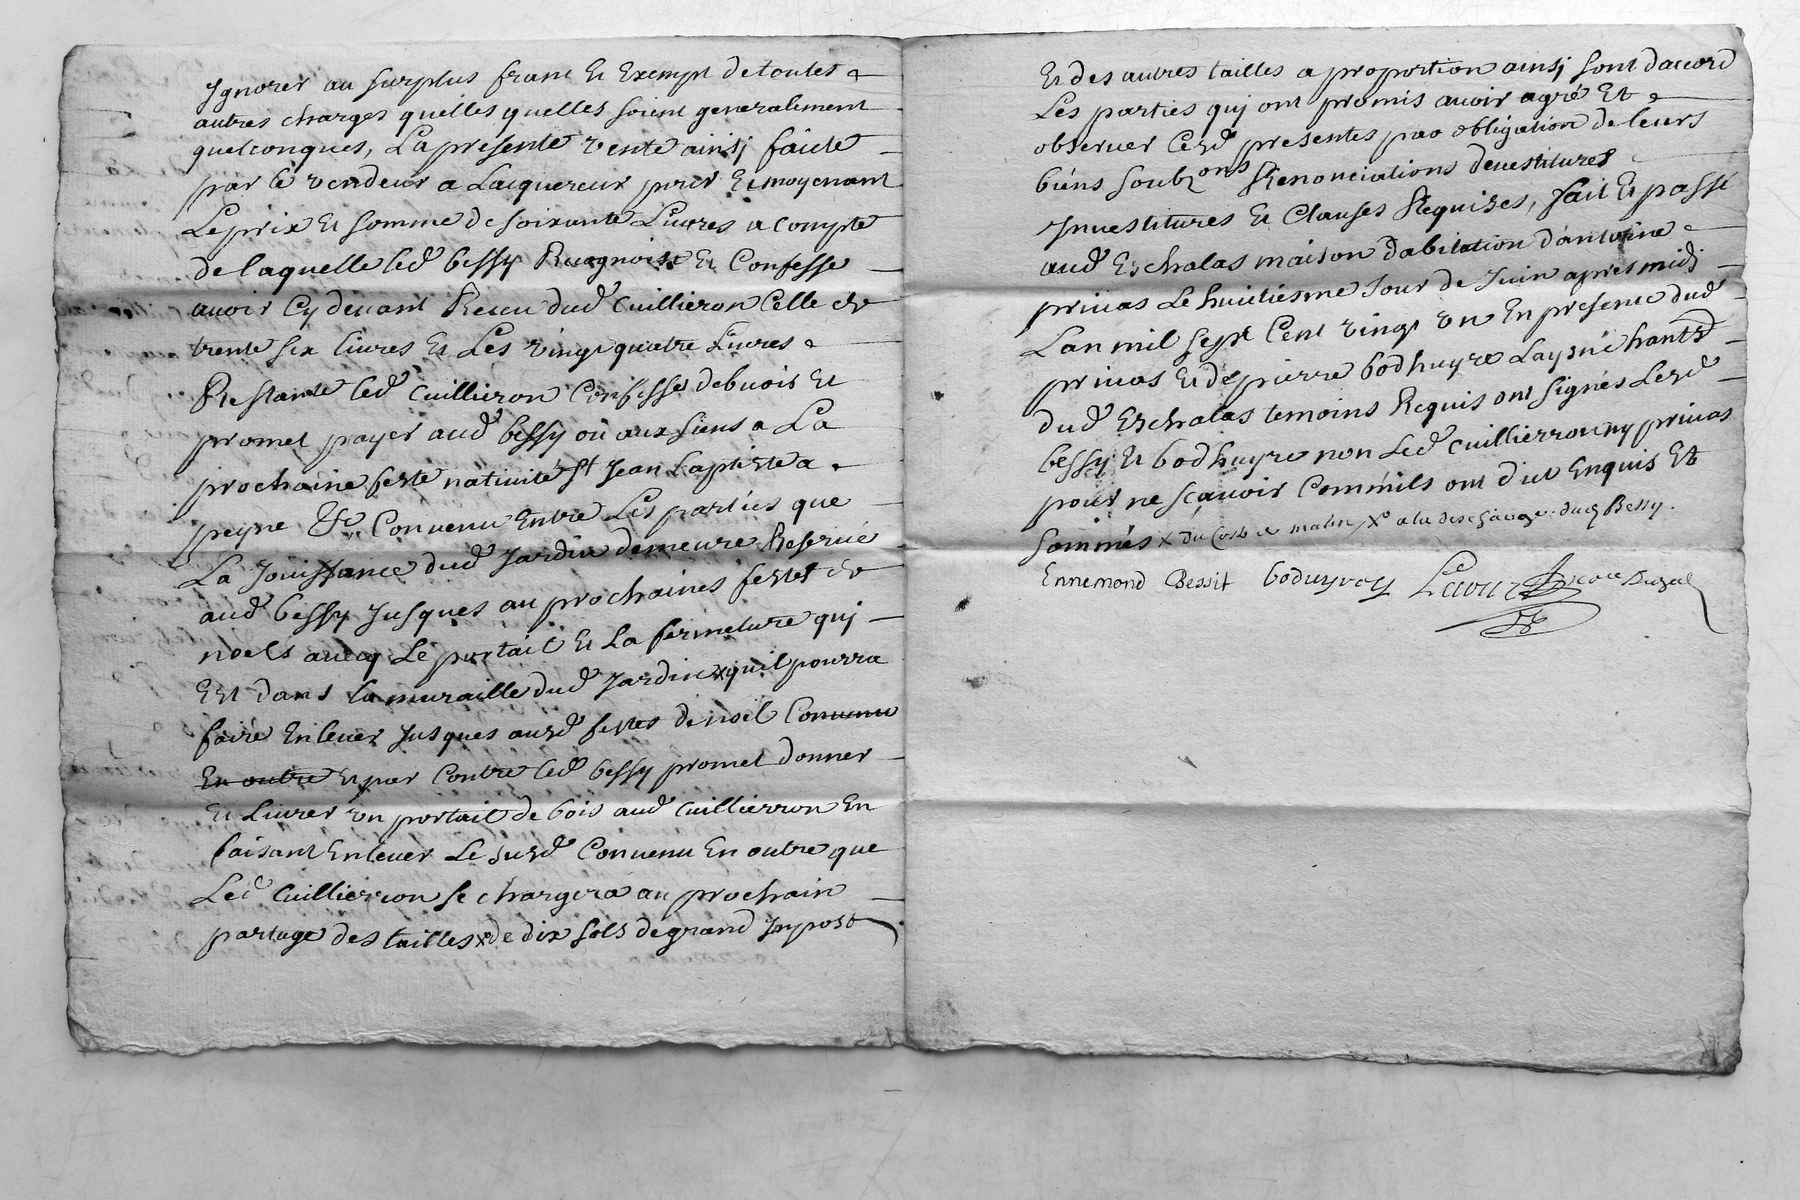 Ignorer au surplus franc Et Exempt de toutes
autres charges quelles quelles soient generalement
quelconques, La presente vente ainsj faicte
par le vendeur a Lacquereur pour Et moyenant
Le prix Et somme de soixante Livres a compte
de laquelle led bessy Recognoist Et Confesse
avoir Cy devant Receu dud Cuillieron Celle de
trente six livres Et Les vingt quatre Livres
Restante led Cuillieron Confesse debvoir Et
promet payer aud bessy ou aux siens a La
prochaine feste nativité St Jean baptiste a
peyne &c Convenu Entre Les parties que
La Jouissance dud Jardin demeure Reservé
aud bessy Jusques au prochaines festes de
noels avecq Le portail Et La fermeture quj
Est dans La muraille dud Jardin x quil pourra
faire Enlever Jusques ausd festes de noel Convenu
En outre Et par Contre led bessy promet donner
Et Livrer vn portail de bois aud Cuillierron En
faisant Enlever Le susd Convenu En outre que
Led Cuillierron se chargera au prochain
partage des tailles x de dix sols de grand Impost
Et des autres tailles a proportion ainsj sont daccord
Les parties quj ont promis avoir agré Et
observer Cesd presentes par obligation de leurs
biens soubz ons Renonciations devestitures
Investitures Et Clauses Requises, fait Et passé
aud Eschalas maison d'abitation d'antoine
privas Le huictiesme Jour de Juin apres midj
Lan mil sept Cent vingt vn En presence dud
privas Et de pierre bodhuyre Laysné hants
dud Eschalas temoins Requis ont signés Lesd
bessy Et bodhuyre non Led Cuillierron ny privas
pour ne sçavoir Comm'ils ont d'ut Enquis Et
sommés x du Costé de matin, x a la descharge dud Bessy.
Ennemond Bessit boduyre